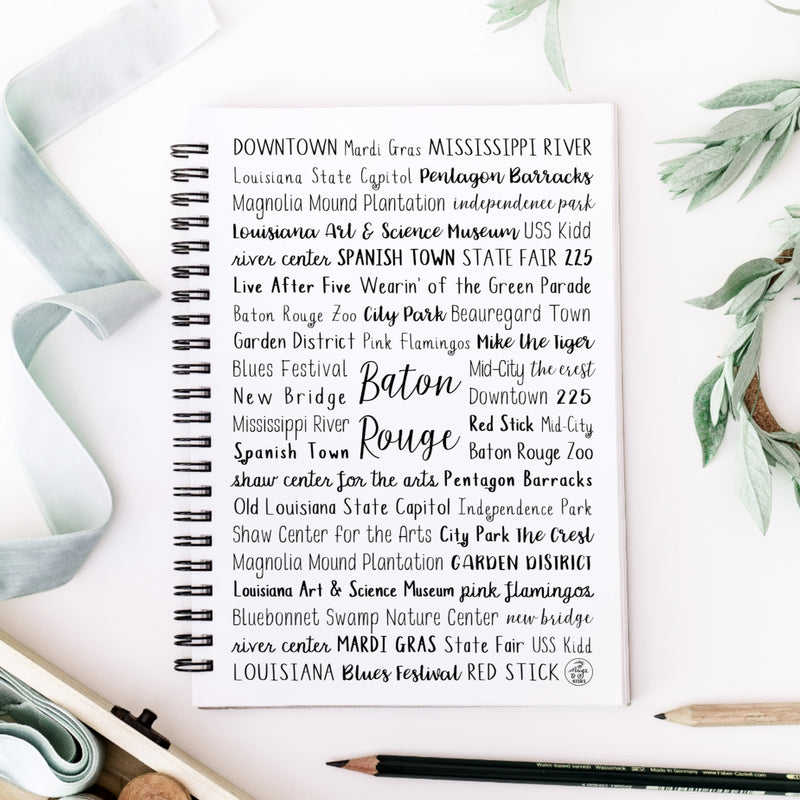 DOWNTOWN Mardi Gras MISSISSIPPI RIVER
Louisiana State Capitol Pentagon Barracks
Magnolia Mound Plantation independence park
Louisiana Art & Science Museum USS Kidd
river center SPANISH TOWN STATE FAIR 225
Live After Five Wearin' of the Green Parade
Baton Rouge Zoo City Park Beauregard Town
Garden District Pink Flamingos Mike the Tiger
Blues Festival
New Bridge
Mississippi River
Spanish Town
Baton
Rouge
Mid-City the crest
Downtown 225
Red Stick Mid-City
Baton Rouge Zoo
shaw center for the arts Pentagon Barracks
Old Louisiana State Capitol Independence Park
Shaw Center for the Arts City Park The Crest
Magnolia Mound Plantation GARDEN DISTRICT
Louisiana Art & Science Museum pink flamingos
Bluebonnet Swamp Nature Center new bridge
river center MARDI GRAS State Fair USS Kidd
LOUISIANA Blues Festival RED STICK
Water-based watercolour Wasserlack Made in Germany www.Faber-Castell.com